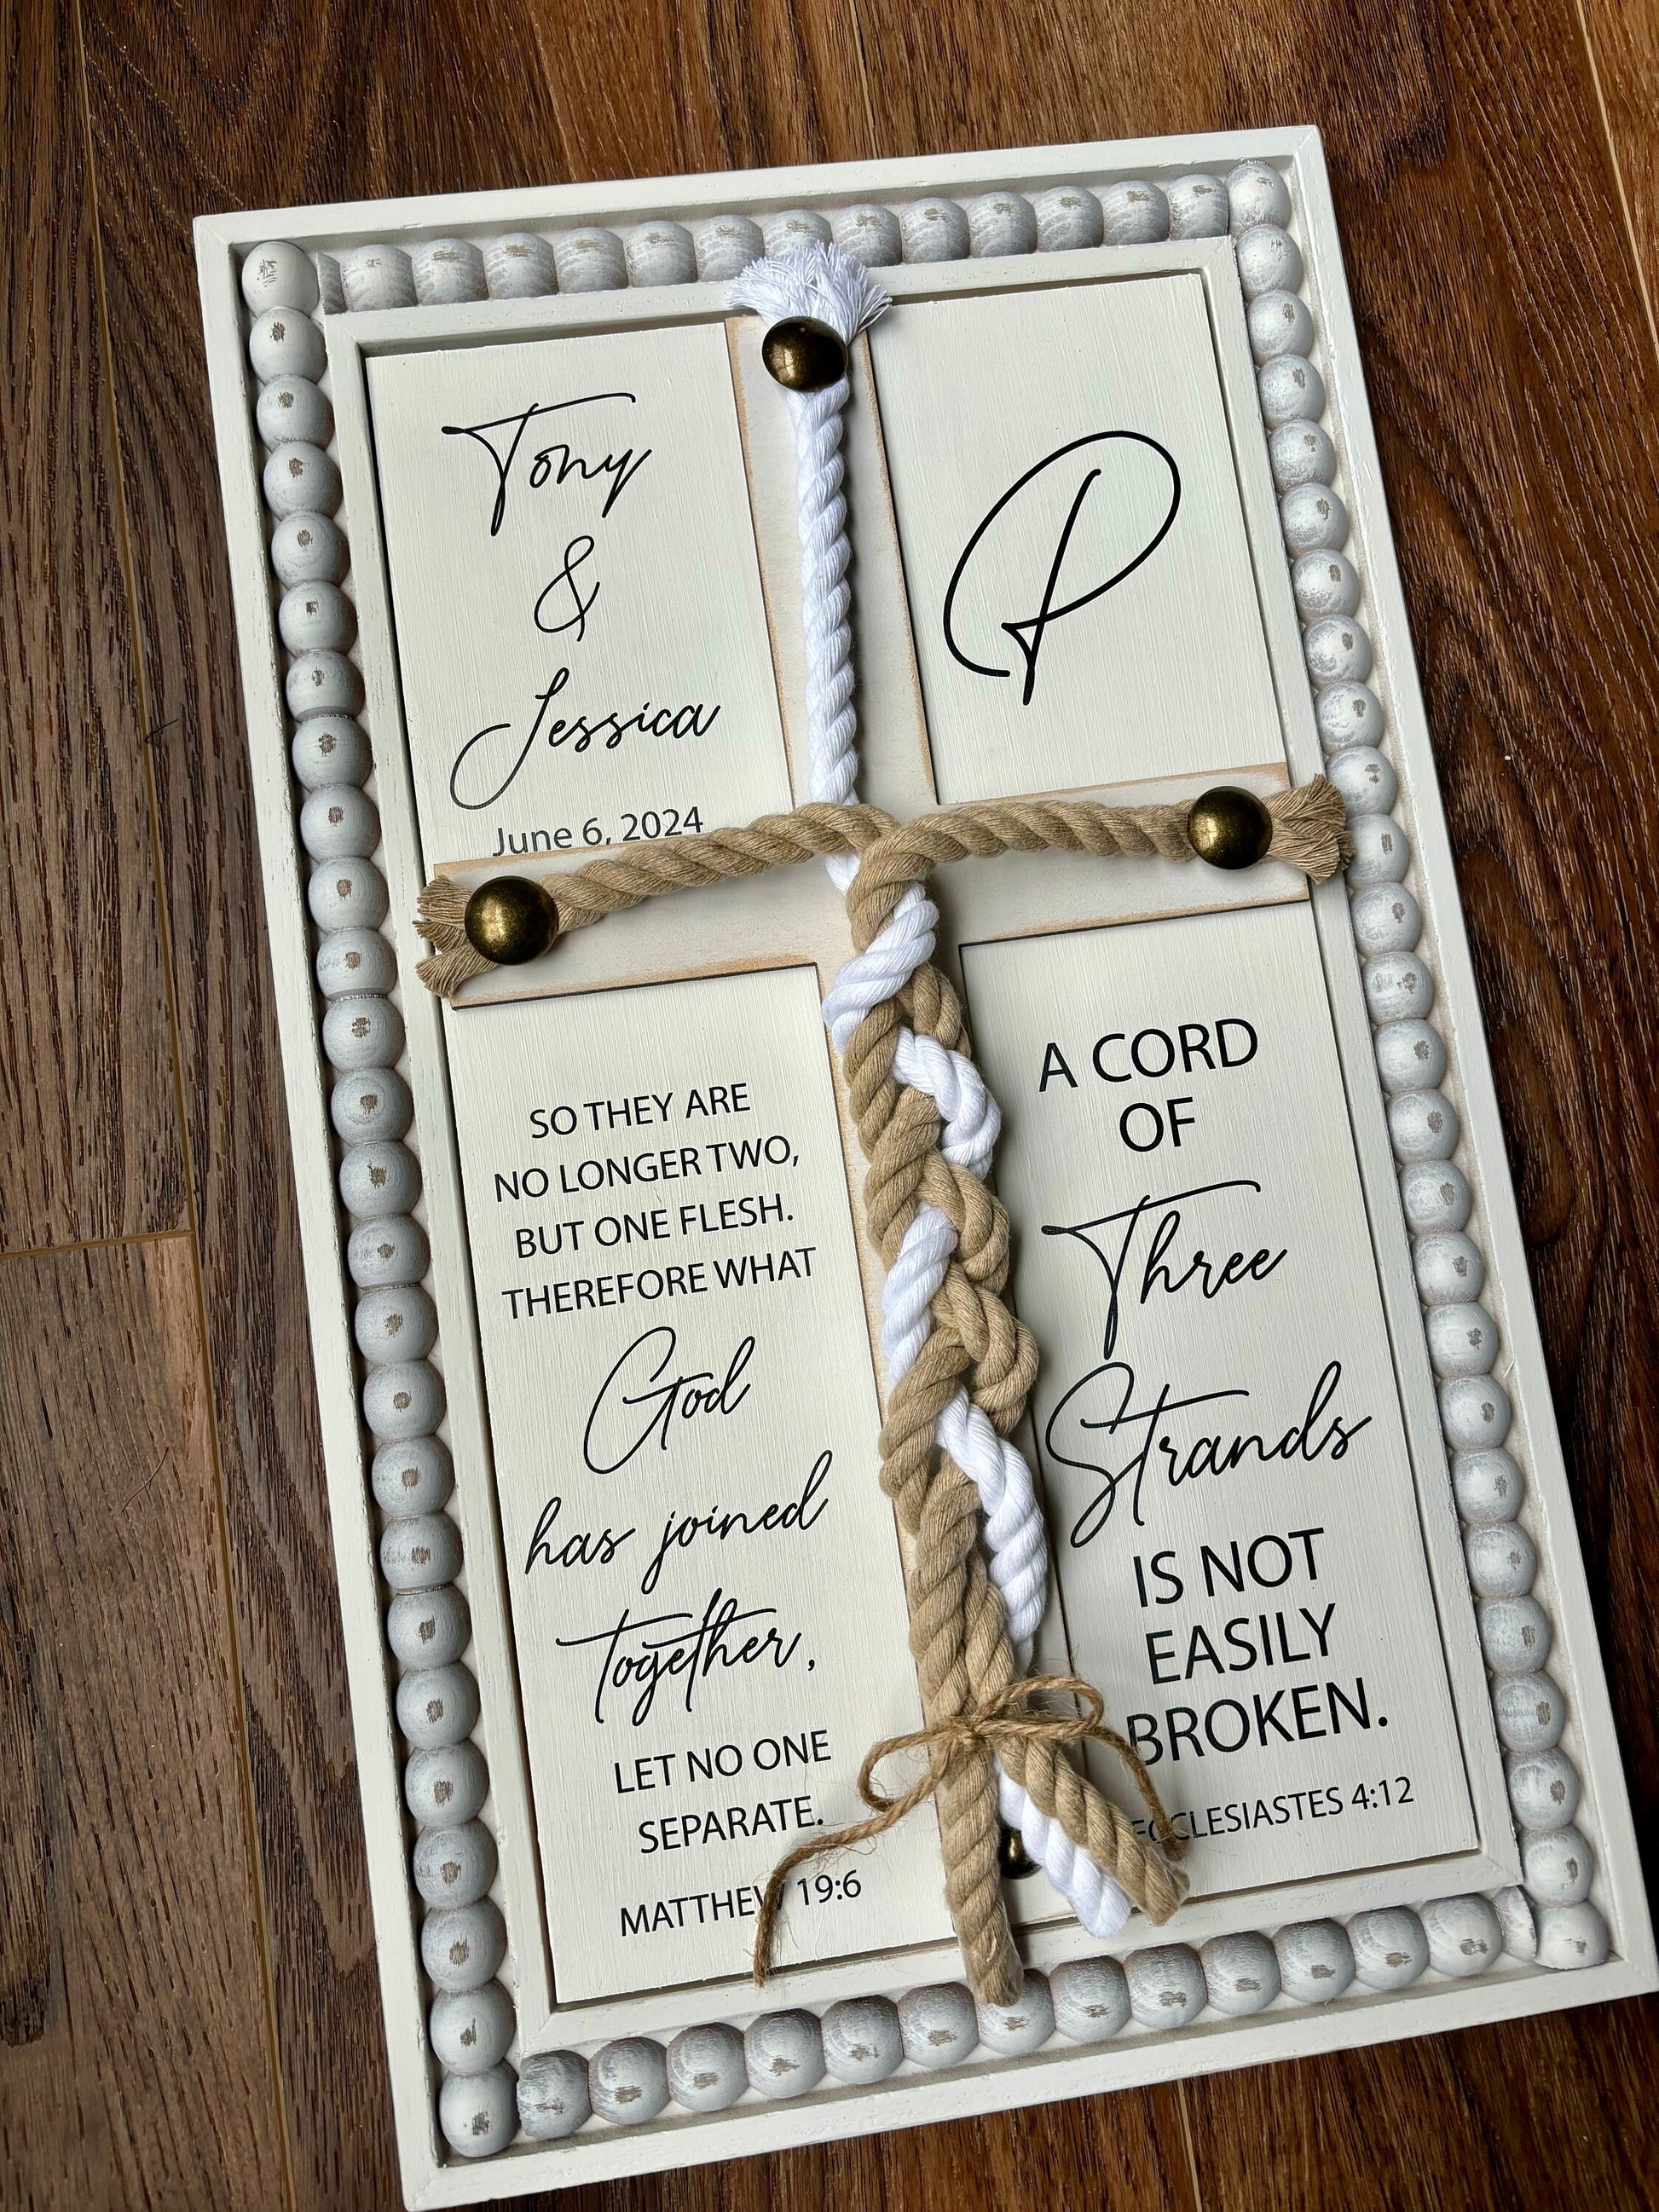 Tony
&
Jessica
June 6, 2024
P
SO THEY ARE
NO LONGER TWO,
BUT ONE FLESH.
THEREFORE WHAT
God
has joined
together,
LET NO ONE
SEPARATE.
MATTHEW 19:6
A CORD
OF
Three
Strands
IS NOT
EASILY
BROKEN.
ECCLESIASTES 4:12